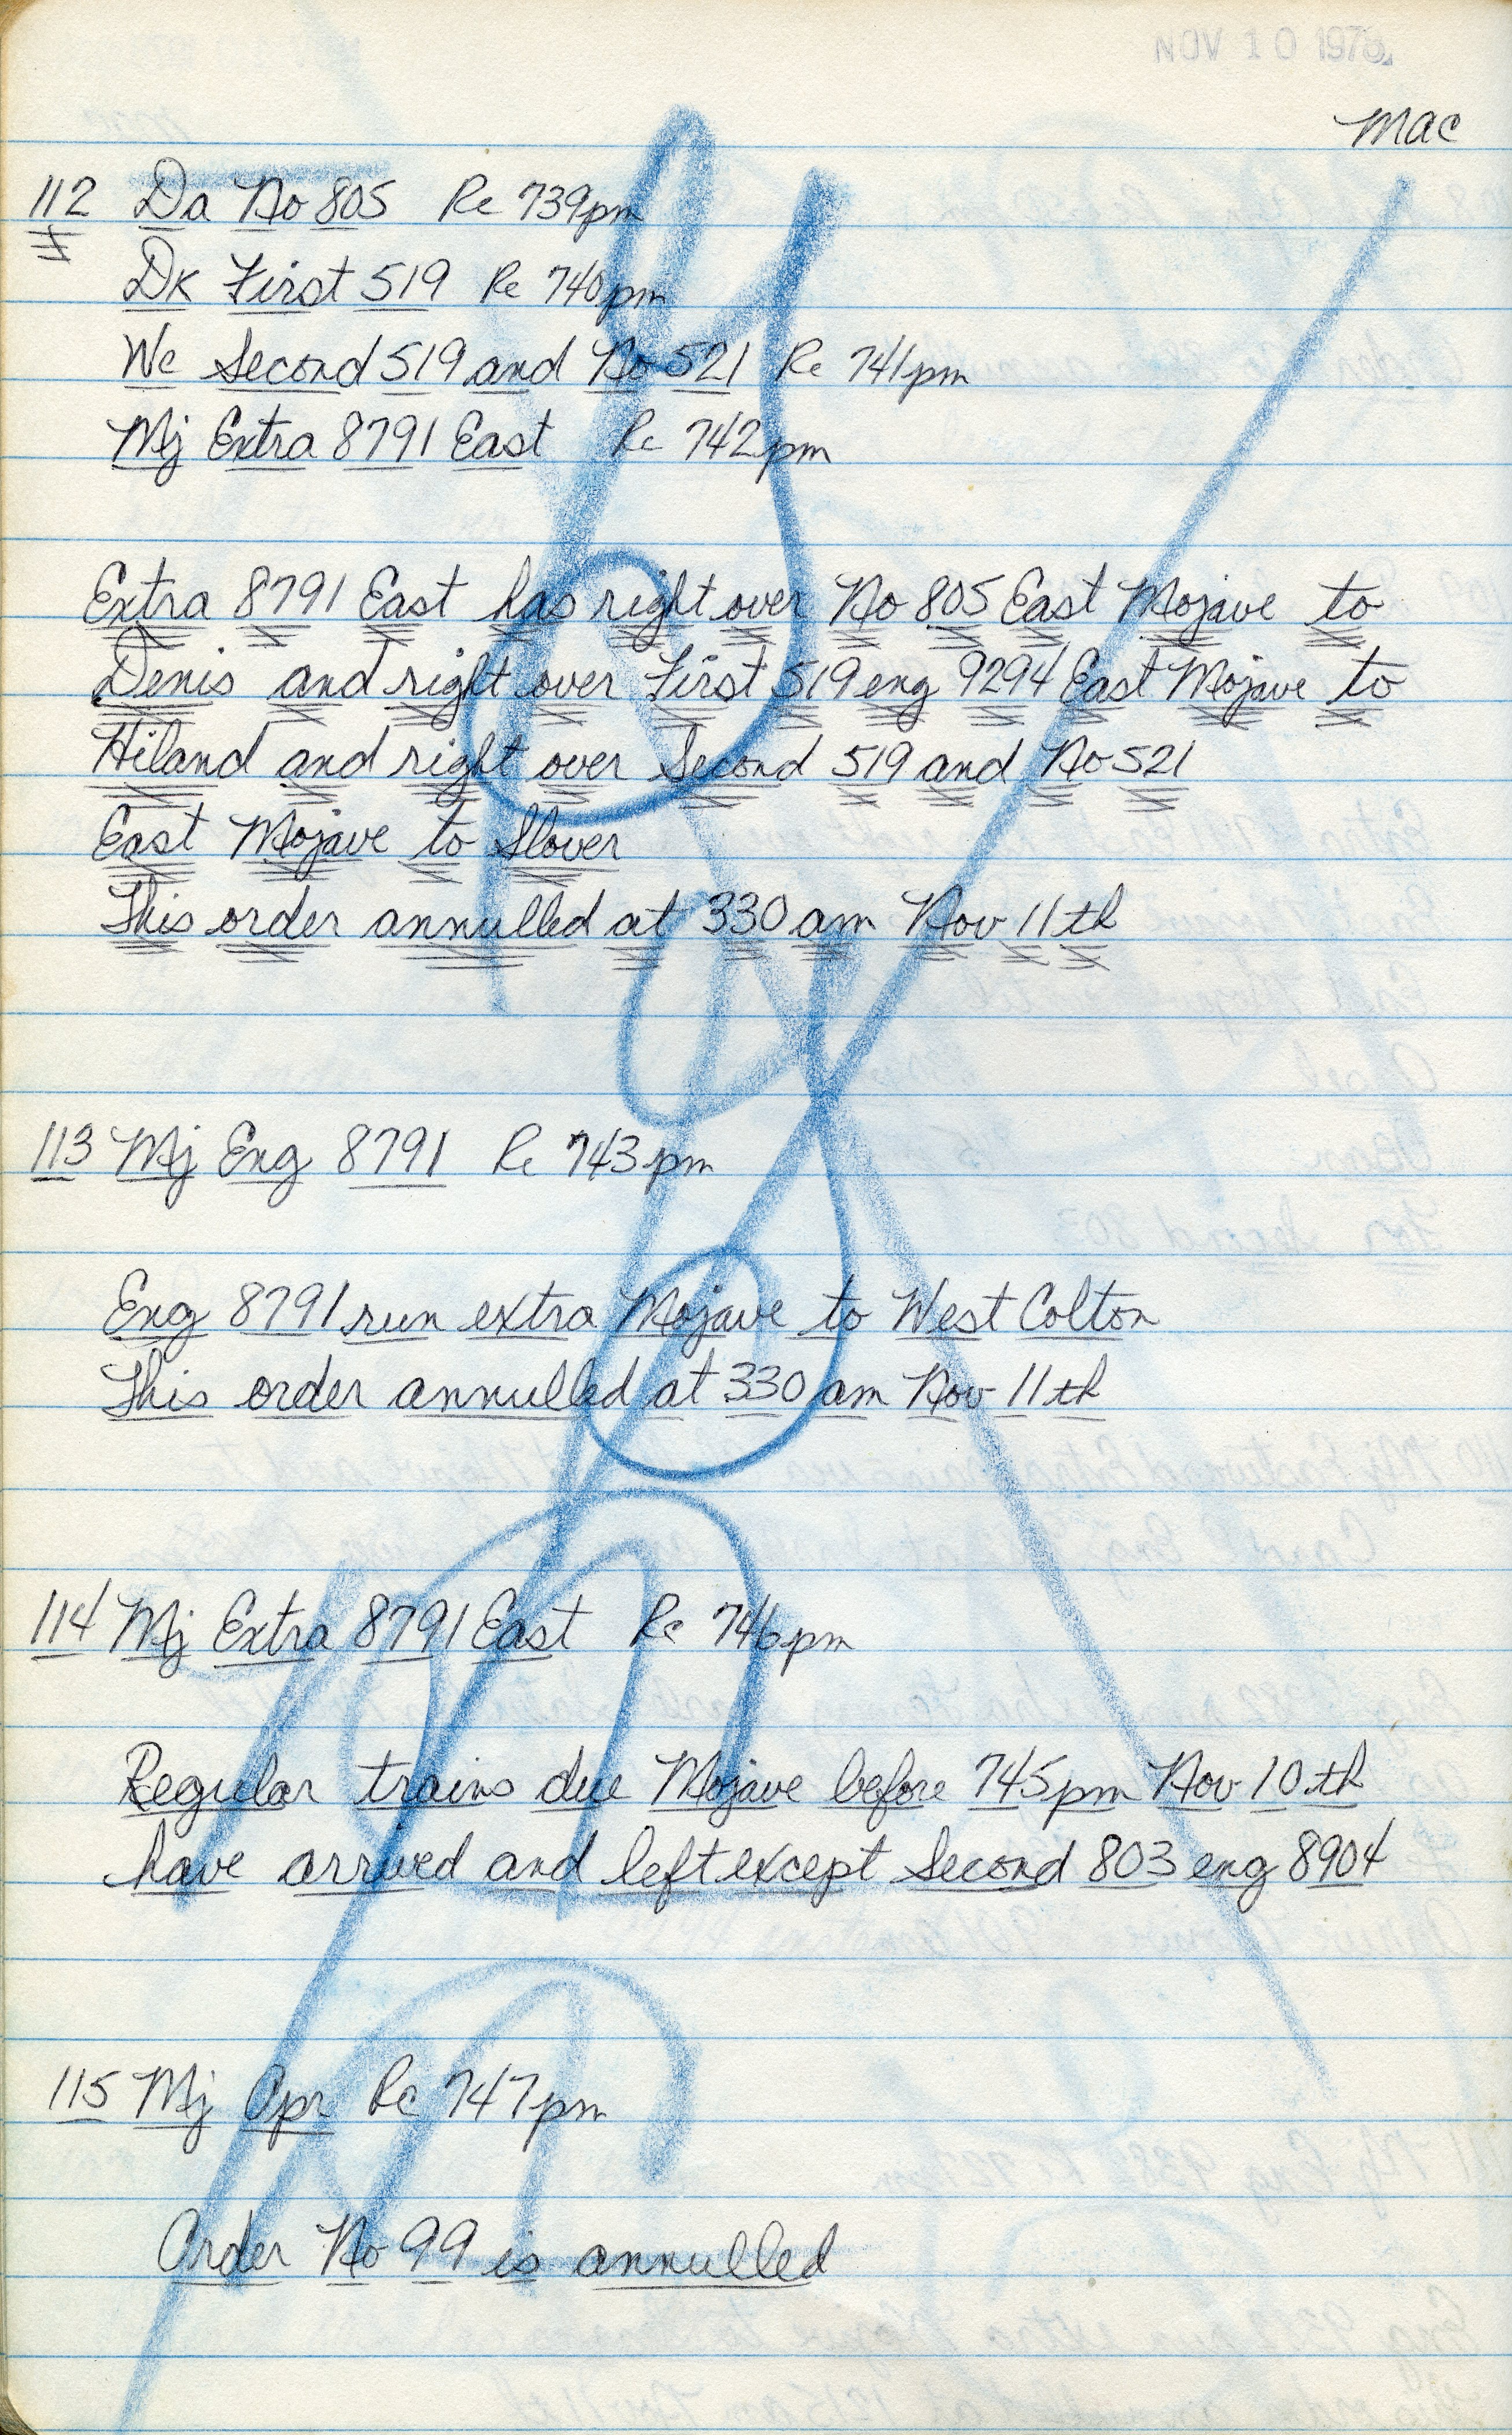 NOV 10 1975
mac
112 Da No 805 Rc 739pm
Dk First 519 Rc 740pm
Wc Second 519 and No 521 Rc 741pm
Mj Extra 8791 East Rc 742pm
Extra 8791 East has right over No 805 East Mojave to
Denis and right over First 519 eng 9294 East Mojave to
Hiland and right over Second 519 and No 521
East Mojave to Slover
This order annulled at 330 am Nov 11th
113 Mj Eng 8791 Rc 743pm
Eng 8791 run extra Mojave to West Colton
This order annulled at 330 am Nov 11th
114 Mj Extra 8791 East Rc 746pm
Regular trains due Mojave before 745pm Nov 10th
have arrived and left except Second 803 eng 8904
115 Mj Opr Rc 747pm
Order No 99 is annulled